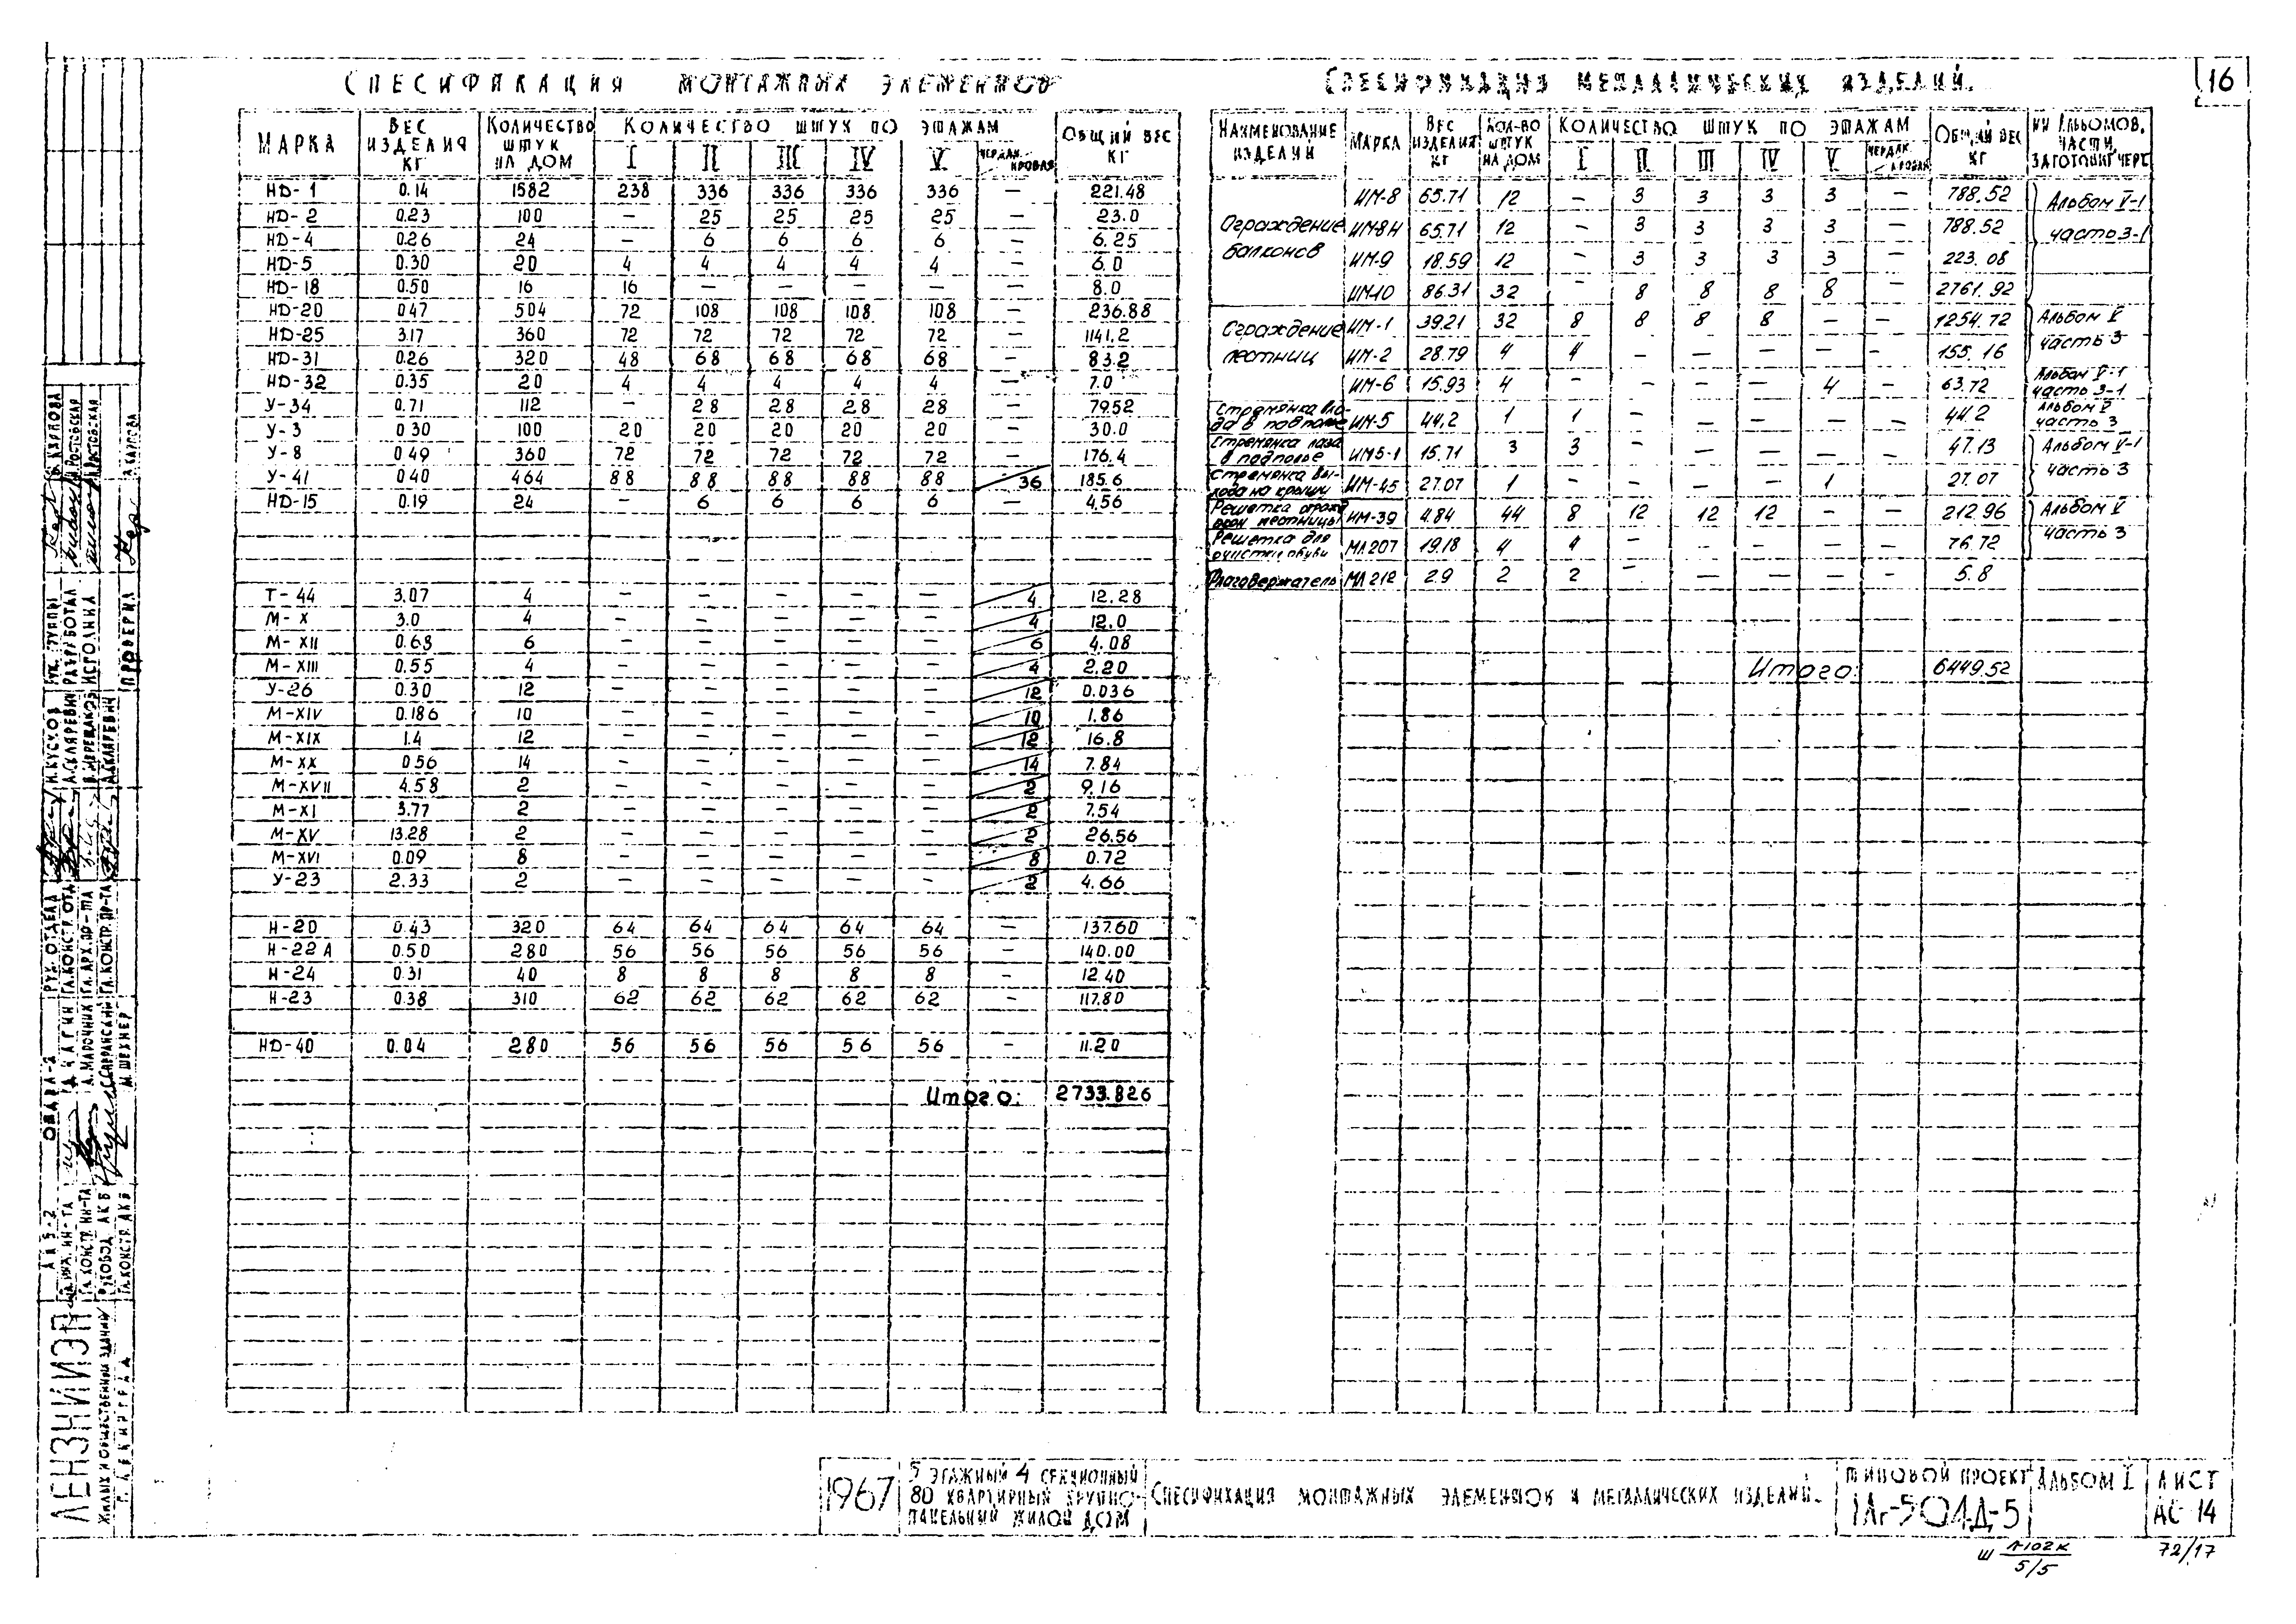 16
СПЕСИФИКАЦИЯ МОНТАЖНЫХ ЭЛЕМЕНТОВ
МАРКА | ВЕС ИЗДЕЛИЯ КГ | КОЛИЧЕСТВО ШТУК НА ДОМ | КОЛИЧЕСТВО ШТУК ПО ЭТАЖАМ I II III IV V ЧЕРДАК КРОВЛЯ | ОБЩИЙ ВЕС КГ
НД-1 0.14 1582 238 336 336 336 336 — 221.48
НД-2 0.23 100 — 25 25 25 25 — 23.0
НД-4 0.26 24 — 6 6 6 6 — 6.25
НД-5 0.30 20 4 4 4 4 4 — 6.0
НД-18 0.50 16 16 — — — — — 8.0
НД-20 0.47 504 72 108 108 108 108 — 236.88
НД-25 3.17 360 72 72 72 72 72 — 1141.2
НД-31 0.26 320 48 68 68 68 68 — 83.2
НД-32 0.35 20 4 4 4 4 4 — 7.0
У-34 0.71 112 — 28 28 28 28 — 79.52
У-3 0.30 100 20 20 20 20 20 — 30.0
У-8 0.49 360 72 72 72 72 72 — 176.4
У-41 0.40 464 88 88 88 88 88 36 185.6
НД-15 0.19 24 — 6 6 6 6 — 4.56
Т-44 3.07 4 — — — — — 4 12.28
М-X 3.0 4 — — — — — 4 12.0
М-XII 0.68 6 — — — — — 6 4.08
М-XIII 0.55 4 — — — — — 4 2.20
У-26 0.30 12 — — — — — 12 0.036
М-XIV 0.186 10 — — — — — 10 1.86
М-XIX 1.4 12 — — — — — 12 16.8
М-XX 0.56 14 — — — — — 14 7.84
М-XVII 4.58 2 — — — — — 2 9.16
М-XI 3.77 2 — — — — — 2 7.54
М-XV 13.28 2 — — — — — 2 26.56
М-XVI 0.09 8 — — — — — 8 0.72
У-23 2.33 2 — — — — — 2 4.66
Н-20 0.43 320 64 64 64 64 64 — 137.60
Н-22А 0.50 280 56 56 56 56 56 — 140.00
Н-24 0.31 40 8 8 8 8 8 — 12.40
Н-23 0.38 310 62 62 62 62 62 — 117.80
НД-40 0.04 280 56 56 56 56 56 — 11.20
Итого: 2733.826
СПЕСИФИКАЦИЯ МЕТАЛЛИЧЕСКИХ ИЗДЕЛИЙ.
НАИМЕНОВАНИЕ ИЗДЕЛИЙ | МАРКА | ВЕС ИЗДЕЛИЯ КГ | КОЛ-ВО ШТУК НА ДОМ | КОЛИЧЕСТВО ШТУК ПО ЭТАЖАМ I II III IV V ЧЕРДАК КРОВЛЯ | ОБЩИЙ ВЕС КГ | NN АЛЬБОМОВ, ЧАСТИ, ЗАГОТОВИТ. ЧЕРТ.
Ограждение балконов
ИМ-8 65.71 12 — 3 3 3 3 — 788.52 Альбом V-1
ИМ-8Н 65.71 12 — 3 3 3 3 — 788.52 часть 3-1
ИМ-9 18.59 12 — 3 3 3 3 — 223.08
ИМ-10 86.31 32 — 8 8 8 8 — 2761.92
Ограждение лестниц
ИМ-1 39.21 32 8 8 8 8 — — 1254.72 Альбом V
ИМ-2 28.79 4 4 — — — — — 155.16 часть 3
ИМ-6 15.93 4 — — — — 4 — 63.72 Альбом V-1 часть 3-1
Стремянка вхо-да в подполье ИМ-5 44.2 1 1 — — — — — 44.2 Альбом V часть 3
Стремянка лаза в подполье ИМ5-1 15.71 3 3 — — — — — 47.13 Альбом V-1
Стремянка вы-хода на крышу ИМ-45 27.07 1 — — — — 1 — 27.07 часть 3
Решетка огражд. лестницы ИМ-39 4.84 44 8 12 12 12 — — 212.96 Альбом V
Решетка для очистки обуви МЛ207 19.18 4 4 — — — — — 76.72 часть 3
Флагодержатель МЛ212 2.9 2 2 — — — — — 5.8
Итого: 6449.52
1967
5 ЭТАЖНЫЙ 4 СЕКЦИОННЫЙ
80 КВАРТИРНЫЙ КРУПНО-
ПАНЕЛЬНЫЙ ЖИЛОЙ ДОМ
СПЕСИФИКАЦИЯ МОНТАЖНЫХ ЭЛЕМЕНТОВ И МЕТАЛЛИЧЕСКИХ ИЗДЕЛИЙ.
ТИПОВОЙ ПРОЕКТ
1Лг-504Д-5
АЛЬБОМ I
ЛИСТ
АС-14
72/17
5/5
ЛЕНЗНИИЭП
ЖИЛЫХ И ОБЩЕСТВЕННЫХ ЗДАНИЙ
Г. ЛЕНИНГРАД
РУК. ОТДЕЛА
РУК. ГРУППЫ
РАЗРАБОТАЛ
ИСПОЛНИЛ
ПРОВЕРИЛ
М. ШЕХНЕР